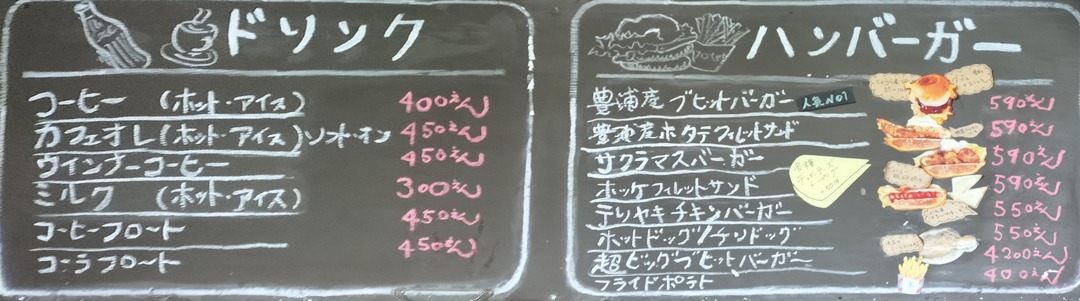 ドリンク
コーヒー (ホット・アイス) 400えん
カフェオレ(ホット・アイス)ソフト・オン 450えん
ウインナーコーヒー 450えん
ミルク (ホット・アイス) 300えん
コーヒーフロート 450えん
コーラフロート 450えん
ハンバーガー
豊浦産 ブヒットバーガー 人気NO1 590えん
豊浦産ホタテフィレットサンド 590えん
サクラマスバーガー 590えん
ホッケフィレットサンド 590えん
テリヤキチキンバーガー 550えん
ホットドッグ/チリドッグ 550えん
超ビッグブヒットバーガー 4200えん
フライドポテト 400えん